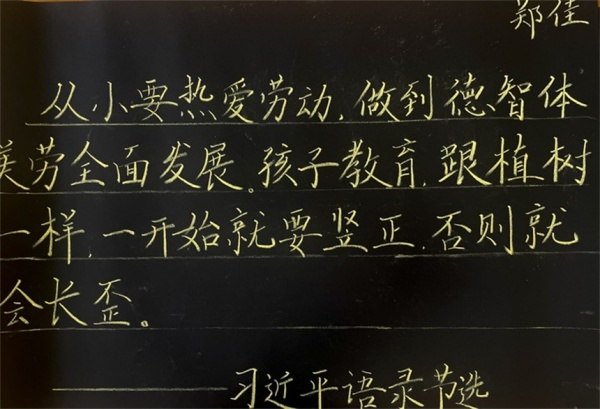 郑佳
从小要热爱劳动,做到德智体
美劳全面发展。孩子教育,跟植树
一样,一开始就要竖正,否则就
会长歪。
——习近平语录节选